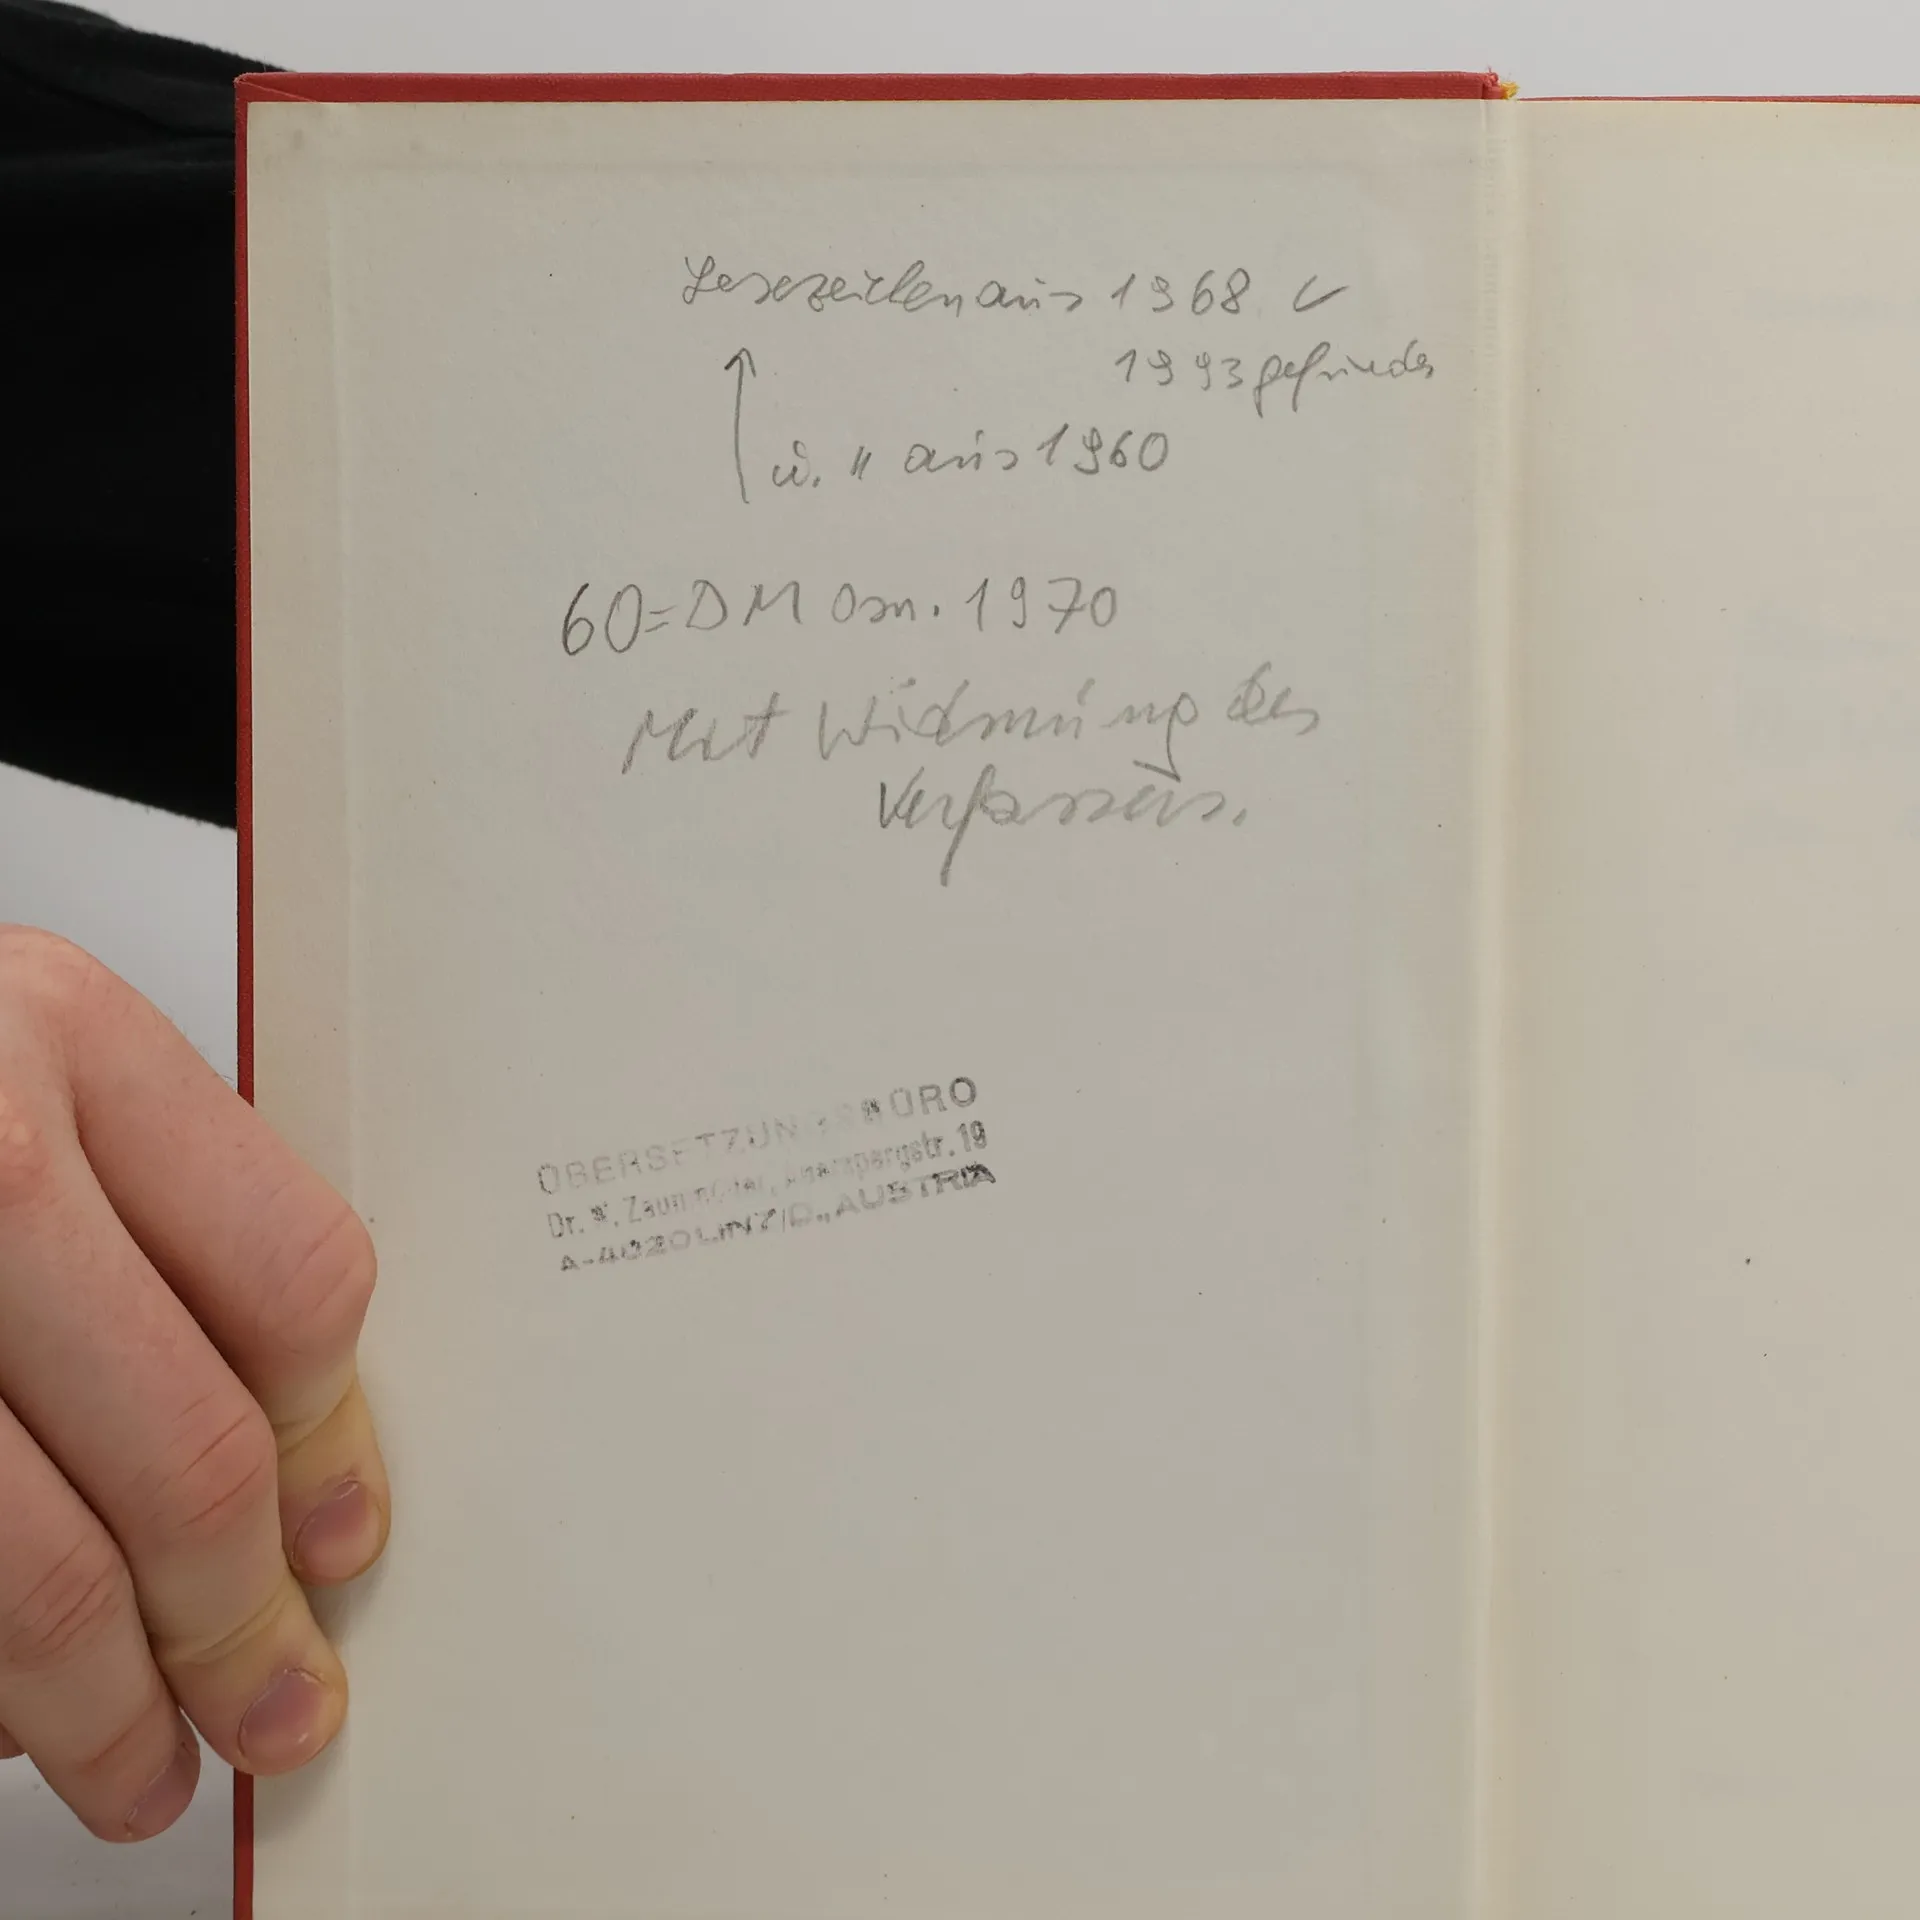 Lesezeichen aus 1968 ✓
1993 gefunden
u. " aus 1960
60= DM Osn. 1970
Mit Widmung des
Verfassers.
ÜBERSETZUNGSBÜRO
Dr. str. 19
A-4020 LINZ/D., AUSTRIA